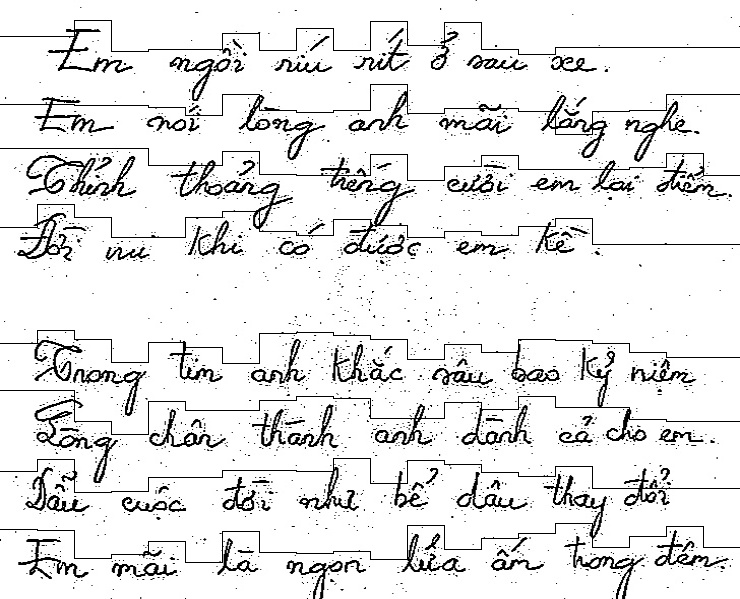 Em ngồi ríu rít ở sau xe.
Em nói lòng anh mãi lắng nghe.
Thỉnh thoảng tiếng cười em lại điểm.
Đời vui khi có được em kề.
Trong tim anh khắc sâu bao kỷ niệm
Lòng chân thành anh dành cả cho em.
Dẫu cuộc đời như bể dâu thay đổi
Em mãi là ngọn lửa ấm trong đêm.